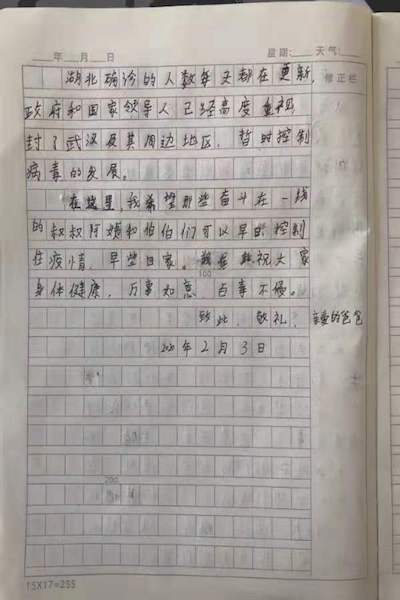 年 月 日 星期: 天气:
湖北确诊的人数每天都在更新, 修正栏
政府和国家领导人已经高度重视
封了武汉及其周边地区,暂时控制
病毒的发展。
在这里,我希望那些奋斗在一线
的叔叔阿姨和伯伯们可以早日控制
住疫情,早些回家。祝大家
100
身体健康,万事如意,百毒不侵。
致此,敬礼, 亲爱的爸爸
2020年2月3日
200
15X17=255